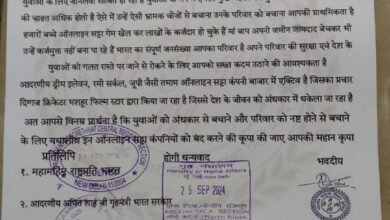 युवाओं के लिए जानलेवा साबित हो रहा है
की चाहत अधिक होती है ऐसे में उन्हें ऐसी भ्रामक चीजों से बचाना उनके परिवार को बचाना आपकी प्राथमिकता है
हजारों बच्चे ऑनलाइन सट्टा गेम खेल कर लाखों के कर्जदार हो चुके हैं मां बाप अपनी जमीन जायदाद बेचकर भी
उन्हें कर्जमुक्त नहीं बना पा रहे हैं भारत का संपूर्ण जनसंख्या आपका परिवार है अपने परिवार की सुरक्षा एवं देश के
युवाओं को गलत रास्ते पर जाने से रोकने के लिए आपको सख्त कदम उठाने की आवश्यकता है
आदरणीय ड्रीम इलेवन, रमी सर्कल, जूपी जैसी तमाम ऑनलाइन सट्टा कंपनी बाजार में एक्टिव है जिसका प्रचार
दिग्गज क्रिकेटर मशहूर फिल्म स्टार द्वारा किया जा रहा है जिससे देश के जीवन को अंधकार में धकेला जा रहा है
अतः आपसे विनम्र प्रार्थना है कि युवाओं को अंधकार से बचाने और परिवार को नष्ट होने से बचाने
के लिए यथाशीघ्र इन ऑनलाइन सट्टा कंपनियों को बंद करने की कृपा की जाए आपकी महान कृपा
प्रतिलिपि
होगी धन्यवाद
भवदीय
१ महामहिम राष्ट्रपति भारत
NEW DELHI-110004
गृह मंत्रालय
Ministry of Home Affairs
25 SEP 2024
RECRUITMENT SECTION
२ आदरणीय अमित शाह जी गृहमंत्री भारत सरकार